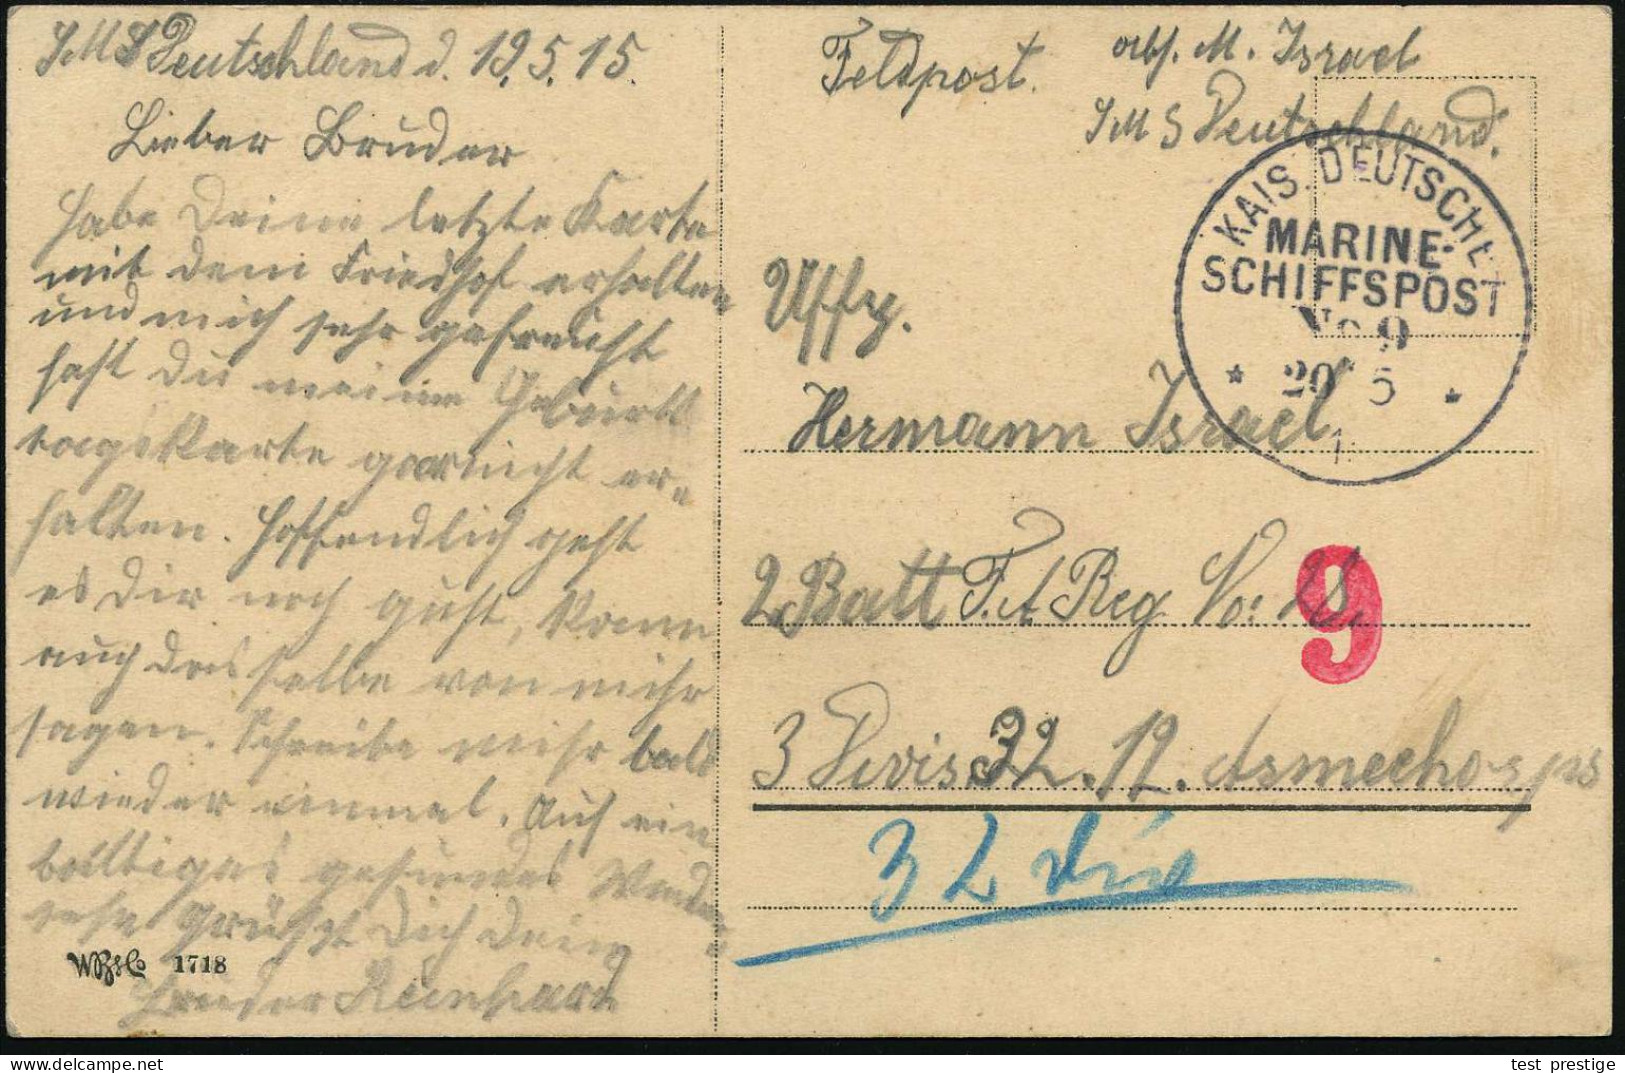 SMS Deutschland d. 19.5.15.
Lieber Bruder
habe Deine letzte Karte
mit dem Friedhof erhalten
und mich sehr gefreucht
hast Du meine Geburts
tagskarte garnicht er-
halten. Hoffendlich geht
es Dir noch guht, kann
auch das selbe von mihr
sagen. Schreibe mihr bald
wieder einmal. Auf ein
baldtiges gesundes Wieder-
sehn grühzt Dich Dein
Bruder Reinhard
WB&Co 1718
Feldpost.
abs. M. Israel
SMS Deutschland.
KAIS. DEUTSCHE
MARINE-
SCHIFFSPOST
No 9
* 20 5 *
Uffz.
Hermann Israel
2 Batt F. A. Reg No: 28.
9
3 Divis. 32. 12. Armeehorps
32 Div
test_prestige